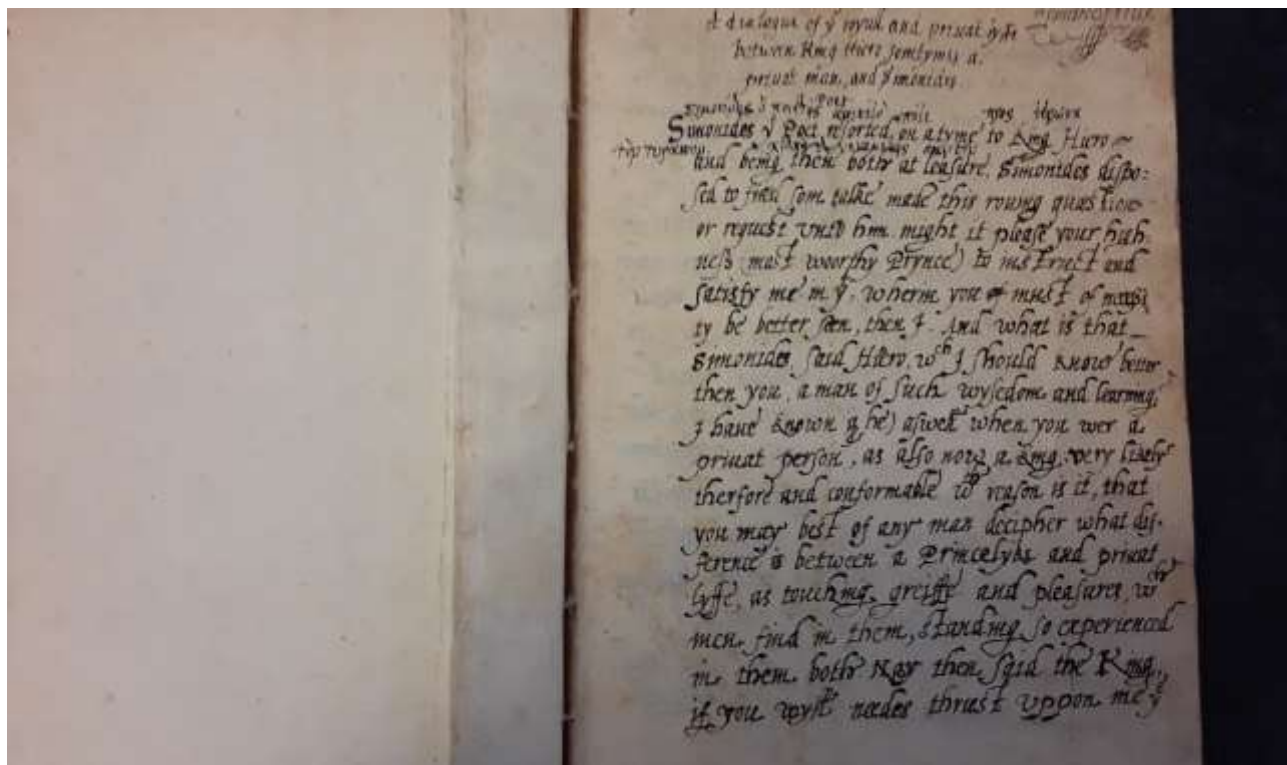 A dialogue of yͤ royall and priuat lyfe
between King Hiero somtymes a
priuat man, and Simonides
Σιμωνίδης ὁ ποιητὴς ἀφίκετό ποτε πρὸς Ἱέρωνα
Simonides yͤ Poet resorted, on a tyme to King Hiero
τὸν τύραννον
and being then both at leasure, Simonides dispo:
sed to find som talke made this question
or request unto him. might it please your high
neſs (most woorthy Prynce) to instruct and
satisfy me in yͭ, wherin you must of necessi
ty be better seen, then I. And what is that
Simonides said Hiero, wᶜʰ I should know better
then you, a man of such wysedom and learning,
I haue known q he) aswell when you wer a
priuat person, as also now a King. very likely
therfore and conformable wᵗʰ reason is it, that
you may best of any man decipher what dif-
ference is between a Princelyke and priuat
lyffe, as touching, greiffe and pleasures, wᶜʰ
men find in them, standing so experienced
in them both Nay then said the King,
if you wyll needes thrust uppon me yͤ